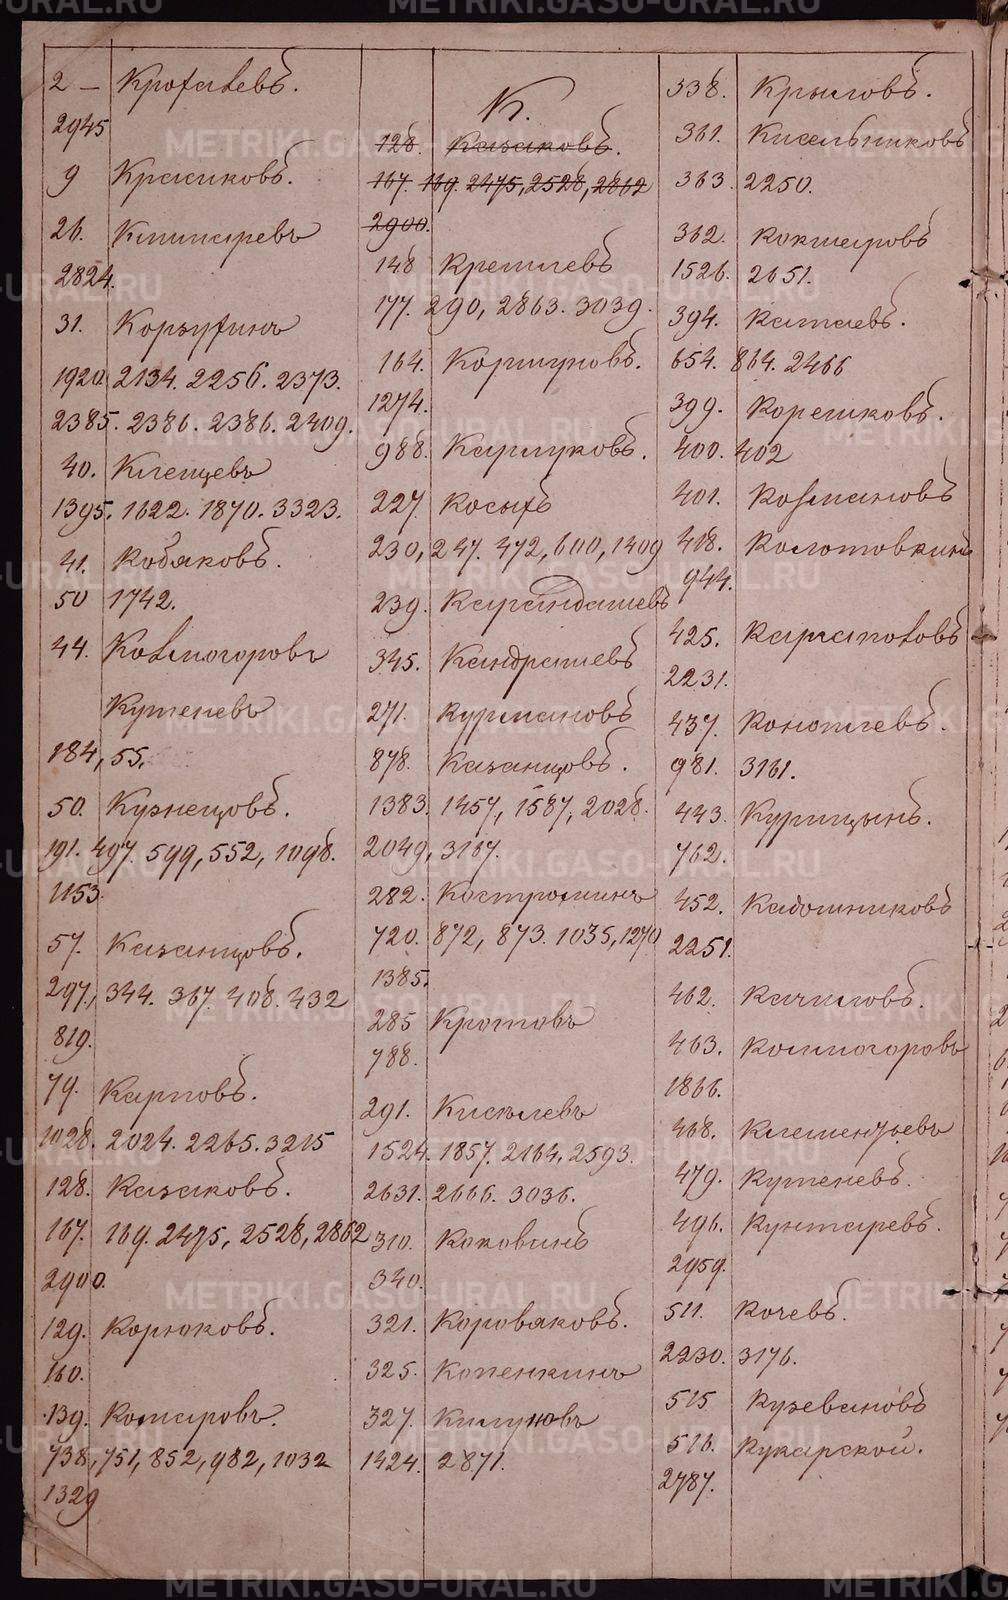 К.
2 — Крохалевъ.
2945
9 Красиковъ.
26. Кашкаревъ
2824.
31. Корзухинъ
1920 2134. 2256. 2373.
2385. 2386. 2386. 2409.
40. Клепцевъ
1395. 1622. 1870. 3323.
41. Кобяковъ.
50 1742.
44. Колмогоровъ
Кутеневъ
184, 55.
50. Кузнецовъ.
191. 497. 599, 552, 1098.
1153.
57. Казанцовъ.
297, 344. 367. 408. 432
819.
79. Карповъ.
1028. 2024. 2265. 3215
128. Казаковъ.
167. 169. 2475, 2528, 2862
2900.
129. Корюковъ.
160.
139. Комаровъ.
738, 751, 852, 982, 1032
1329
128. Казаковъ.
167. 169. 2475, 2528, 2862
2900.
148 Кремлевъ
177. 290, 2863. 3039.
164. Коршуновъ.
1274.
988. Кармуковъ.
227. Косыхъ
230, 247. 472, 600, 1409
239. Карандашевъ
345. Кандрашевъ
271. Курмановъ
878. Казанцовъ.
1383. 1457, 1587, 2028.
2049, 3167.
282. Костроминъ
720. 872, 873. 1035, 1270
1385.
285 Кротовъ
788.
291. Киселевъ
1524. 1857. 2164. 2593.
2631. 2666. 3036.
310. Коковинъ
340.
321. Короваковъ.
325. Копенкинъ
327. Килуновъ
1424. 2871.
338. Крыловъ.
361. Кисельниковъ
363. 2250.
362. Кокшаровъ
1526. 2651.
394. Катаевъ.
654. 864. 2466
399. Корешковъ.
400. 402
401. Колмаковъ
418. Колотовкинъ
944.
425. Карнаповъ
2231.
437. Коноплевъ.
981. 3161.
443. Курицынъ.
762.
452. Кадошниковъ
2251.
462. Качаловъ.
463. Колмогоровъ
1866.
468. Клементьевъ
479. Кутеневъ.
496. Кунгаревъ.
2959.
511. Кочевъ.
2230. 3176.
515 Кузевановъ
516. Кукарской.
2787.
METRIKI.GASO-URAL.RU